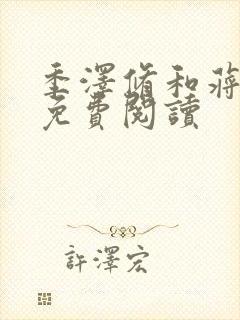 季澤脩和蔣
免費閱讀
許澤宏